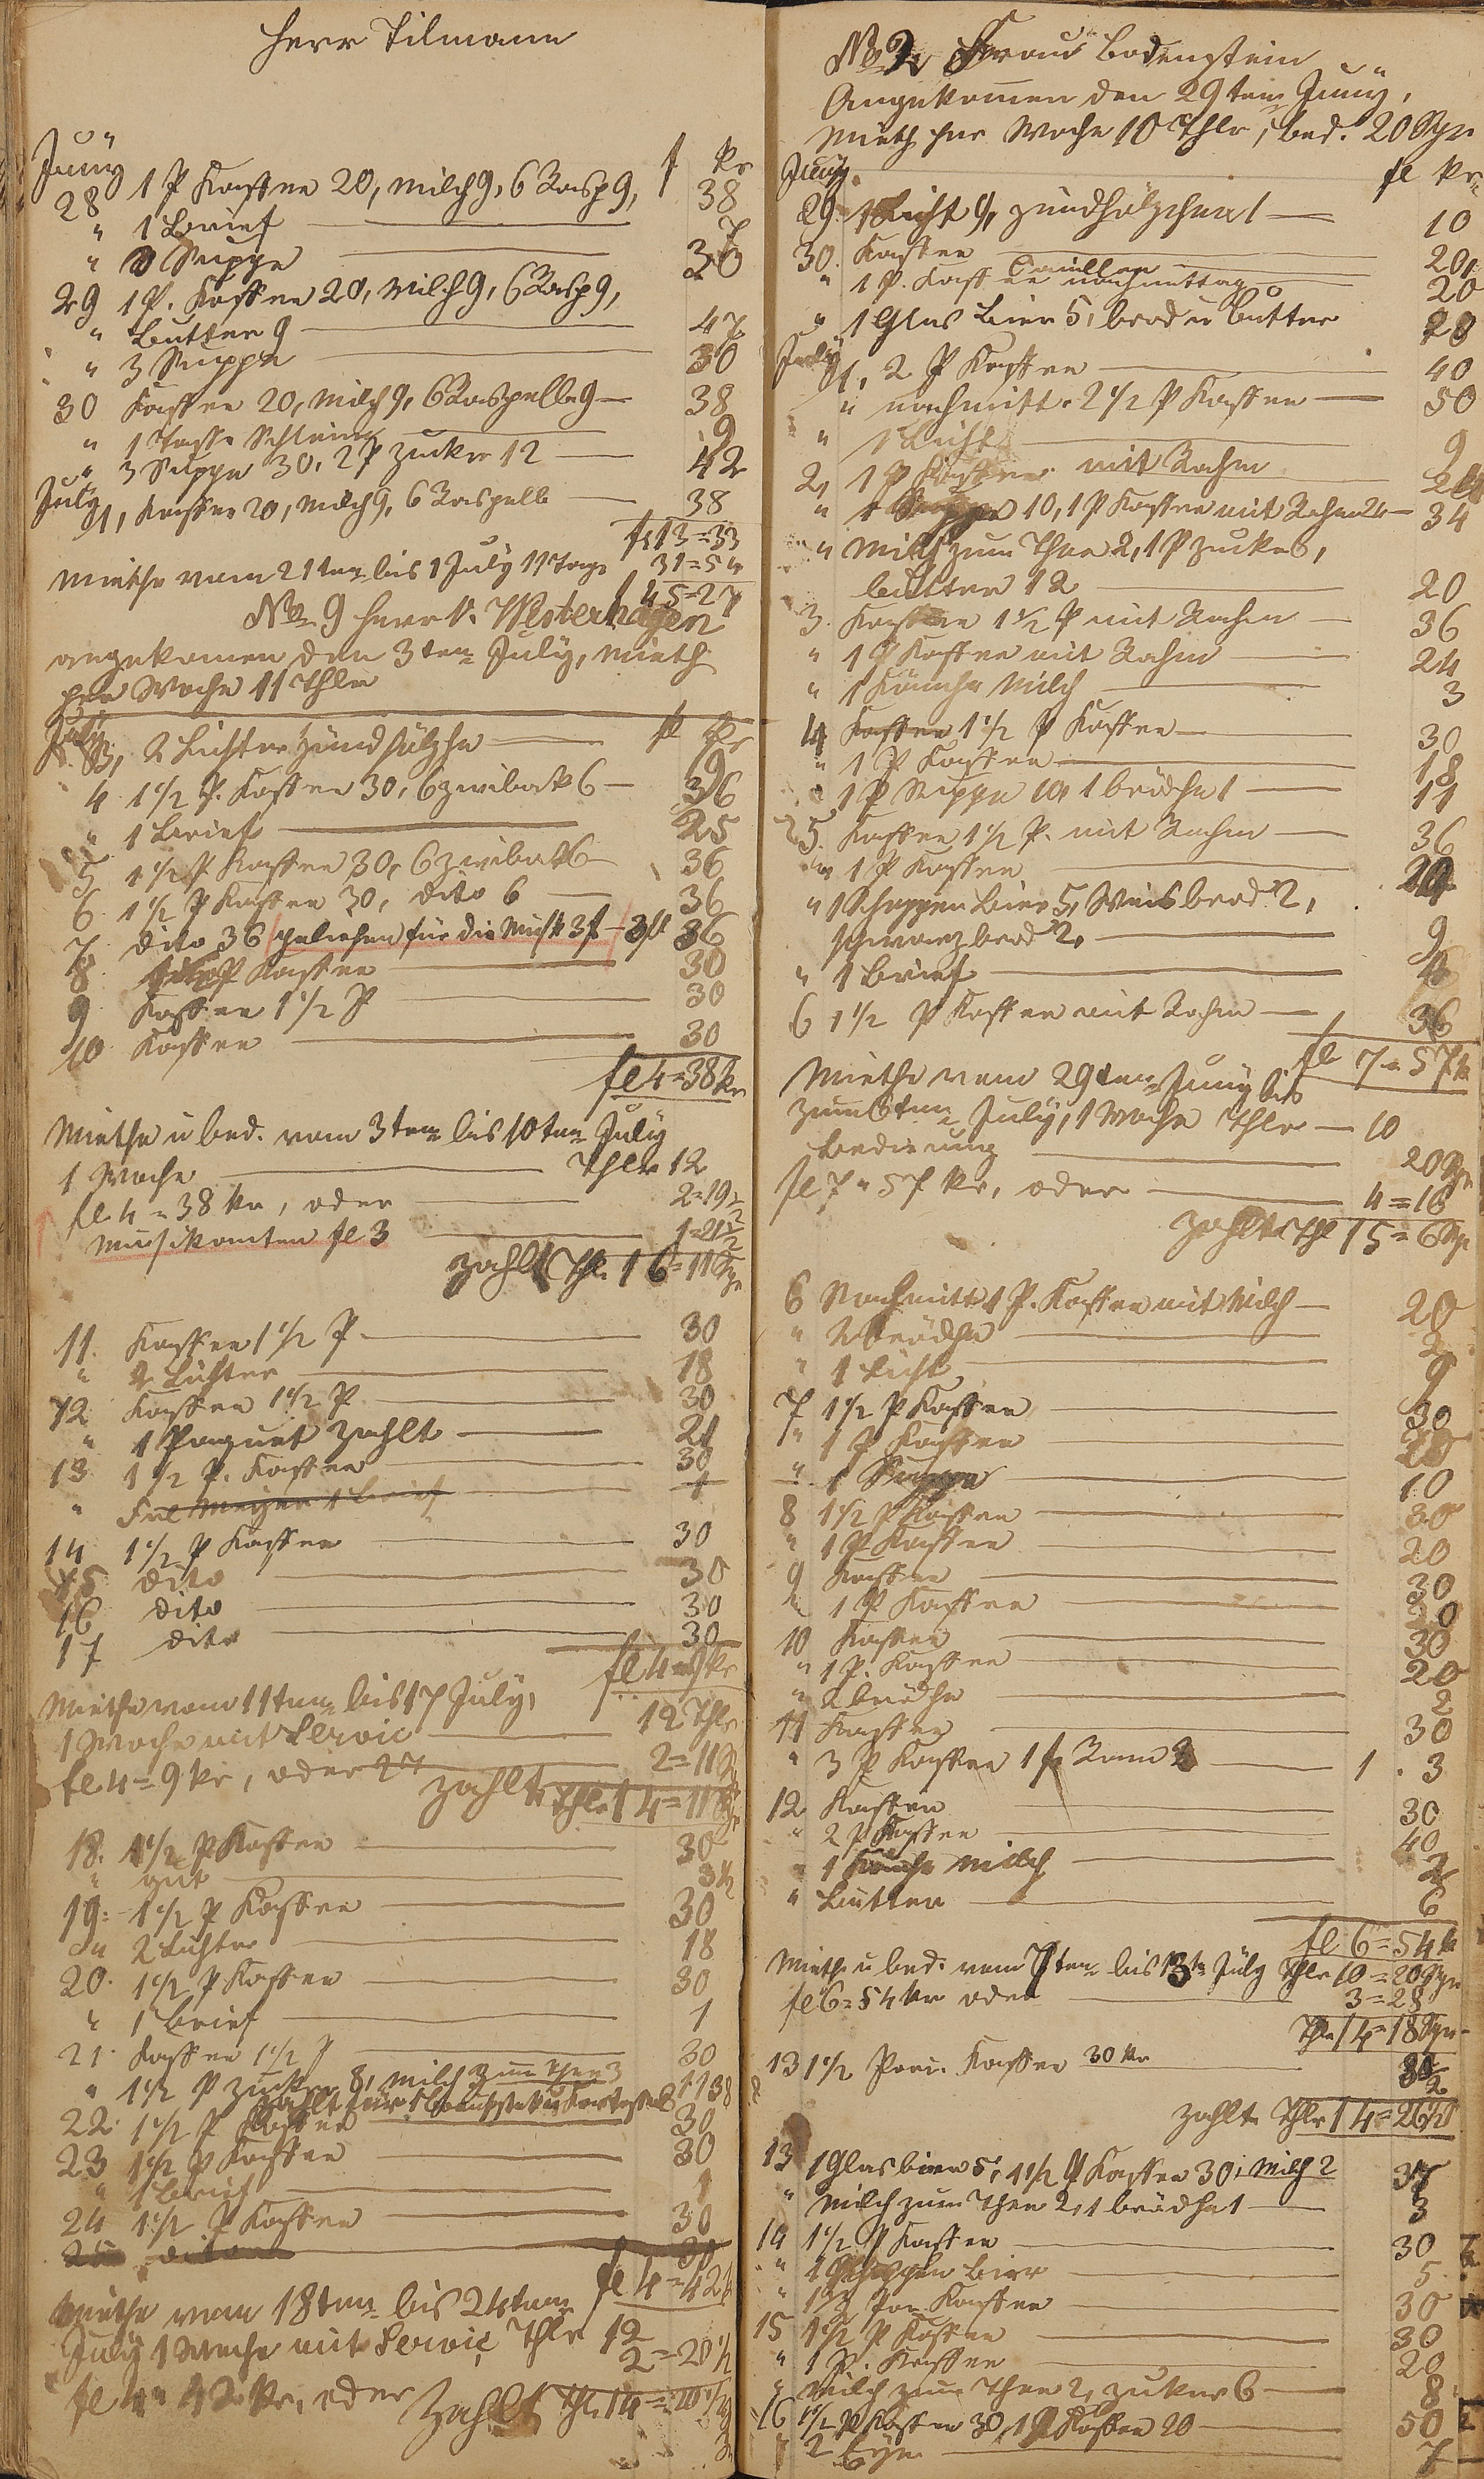 Herr Tilmann
Juny f kr
28 1 P Kaffee 20, Milch 9, 6 Rasp 9, 38
" 1 Brief 7
" 3 Suppe 30
29 1 P. Kaffee 20, Milch 9, 6 Rasp 9,
" Butter 9 47
" 3 Suppe 30
30 Kaffee 20, Milch 9, 6 Raspelle 9 38
" 1 Tasse Schleim 9
" 3 Suppe 30, 2 P Zucker 12 42
July 1, Kaffee 20, Milch 9, 6 Raspelle 38
fl 13 = 33
Miethe vom 21ten bis 1 July 11 Tage 31 = 54
f 45 = 27
No 9 Herr v. Westerhagen
angekomen den 3ten July, Mieth
per Woche 11 Thlr
July fl kr
3, 2 Lichter Zündhölzhe 19
4 1 1/2 P. Kaffee 30, 6 Zwiback 6 36
" 1 Brief 25
5 1 1/2 P Kaffee 30, 6 Zwiback 6 36
6 1 1/2 P Kaffee 30, dito 6 36
7 dito 36 geliehen für die Musik 3 f 3 fl 36
8 P Kaffee 30
9 Kaffee 1 1/2 P 30
10 Kaffee 30
fl 4 = 38 kr
Miethe u bed. vom 3ten bis 10ten July
1 Woche Thlr 12
fl 4 = 38 kr, oder 2 = 19 1/2
Musikanten fl 3 1 = 21 1/2
Zahlt Thl. 16 = 11 Sgr
11. Kaffee 1 1/2 P 30
" 2 Lichter 18
12 Kaffee 1 1/2 P 30
" 1 Paquet Zahlt 21
13 1 1/2 P. Kaffee 30
" Frl Meyer 1 Brief 1
14 1 1/2 P Kaffee 30
15 dito 30
16 dito 30
17 dito 30
fl 4 = 9 kr
Miethe vom 11ten bis 17 July,
1 Woche mit Servic 12 Thlr
fl 4 = 9 kr, oder 2 = 11 Sgr
Zahlt Thlr 14 = 11 Sgr
18. 1 1/2 P Kaffee 30
" gut
19. 1 1/2 P Kaffee 30
" 2 Lichter 18
20. 1 1/2 P Kaffee 30
" 1 Brief 1
21. Kaffee 1 1/2 P 30
" 1 1/2 P Zucker 8, Milch zum Thee 3 11
Zahlt für 38
22. 1 1/2 P Kaffee 30
23 1 1/2 P Kaffee 30
" 1 Brief 1
24 1 1/2 P Kaffee 30
25 dito 30
fl 4 = 42 k
Miethe vom 18ten bis 24ten
July 1 Woche mit Servic Thlr 12
2 = 20 1/2
fl 4 " 42 kr, oder Zahlt Thl. 14 = 20 1/2 Sgr
No 2 Frau Bodenstein
Angekomen den 29ten Juny,
Mieth per Woche 10 Thlr, bed. 20 Sgr
Juny fl kr
29. 1 Licht 9, Zündhölzchen 1 10
30. Kaffee 20
" 1 P. Kaffee nachmittag 20
" 1 Glas Bier 5, brod u Butter
July 1, 2 P Kaffee 40
" nachmitt. 2 1/2 P Kaffee 50
" 1 Licht 9
2, 1 P Kaffee mit Rahm 24
" 1 Suppe 10, 1 P Kaffee mit Rahm 24 34
" Milch zum Thee 2, 1 P Zucker 6,
Butter 12 20
3. Kaffee 1 1/2 P mit Rahm 36
" 1 P Kaffee mit Rahm 24
" 1 Känche Milch 3
4 Kaffee 1 1/2 P Kaffee 30
" 1 P Kaffee 18
" 1 P Suppe 10 1 brödhe 1 11
5. Kaffee 1 1/2 P. mit Rahm 36
" 1 P Kaffee 20
" 1 Schoppen Bier 5, Weisbrod 2,
Schwarzbrod 2, 9
" 1 Brief
6 1 1/2 P Kaffee mit Rahm 36
fl 7 = 57 k
Miethe vom 29ten Juny bis
zum 6ten July, 1 Woche Thlr 10
Bedienung 20 Sgr
fl 7 " 57 kr, oder 4 = 16
Zahlt Thl 15 = 6 Sgr
6 Nachmitt 1 P. Kaffee mit Milch 20
" 2 brödhe 2
" 1 Licht 9
7 1 1/2 P Kaffee 30
" 1 P Kaffee 20
" 1 Suppe 10
8 1 1/2 P Kaffee 30
" 1 P Kaffee 20
9 Kaffee 30
" 1 P Kaffee 20
10 Kaffee 30
" 1 P. Kaffee 20
" 2 brödhe 2
11 Kaffee 30
" 3 P Kaffee 1 f Ram 3 1 . 3
12 Kaffee 30
" 2 P Kaffee 40
" 1 Känche Milch 2
" Butter 6
fl 6 = 54 k
Mieth u bed. vom 7ten bis 13te July Thlr 10 = 20 Sgr
fl 6 = 54 kr oder 3 = 28
Thlr 14 = 18 Sgr
13 1 1/2 Porc. Kaffee 30 kr
Zahlt Thlr 14 = 26 1/2
13 1 Glas bier 5, 1 1/2 P Kaffee 30, Milch 2 37
" Milch zum Thee 2, 1 brödhe 1 3
14 1 1/2 P Kaffee 30
" 1 Schoppen Bier 5
" 1 1/2 Por Kaffee 30
15 1 1/2 P Kaffee 30
" 1 P. Kaffee 20
" Milch zum Thee 2, Zucker 6 8
16 1 1/2 P Kaffee 30, 1 P Kaffee 20 50
" 2 Eyer 7